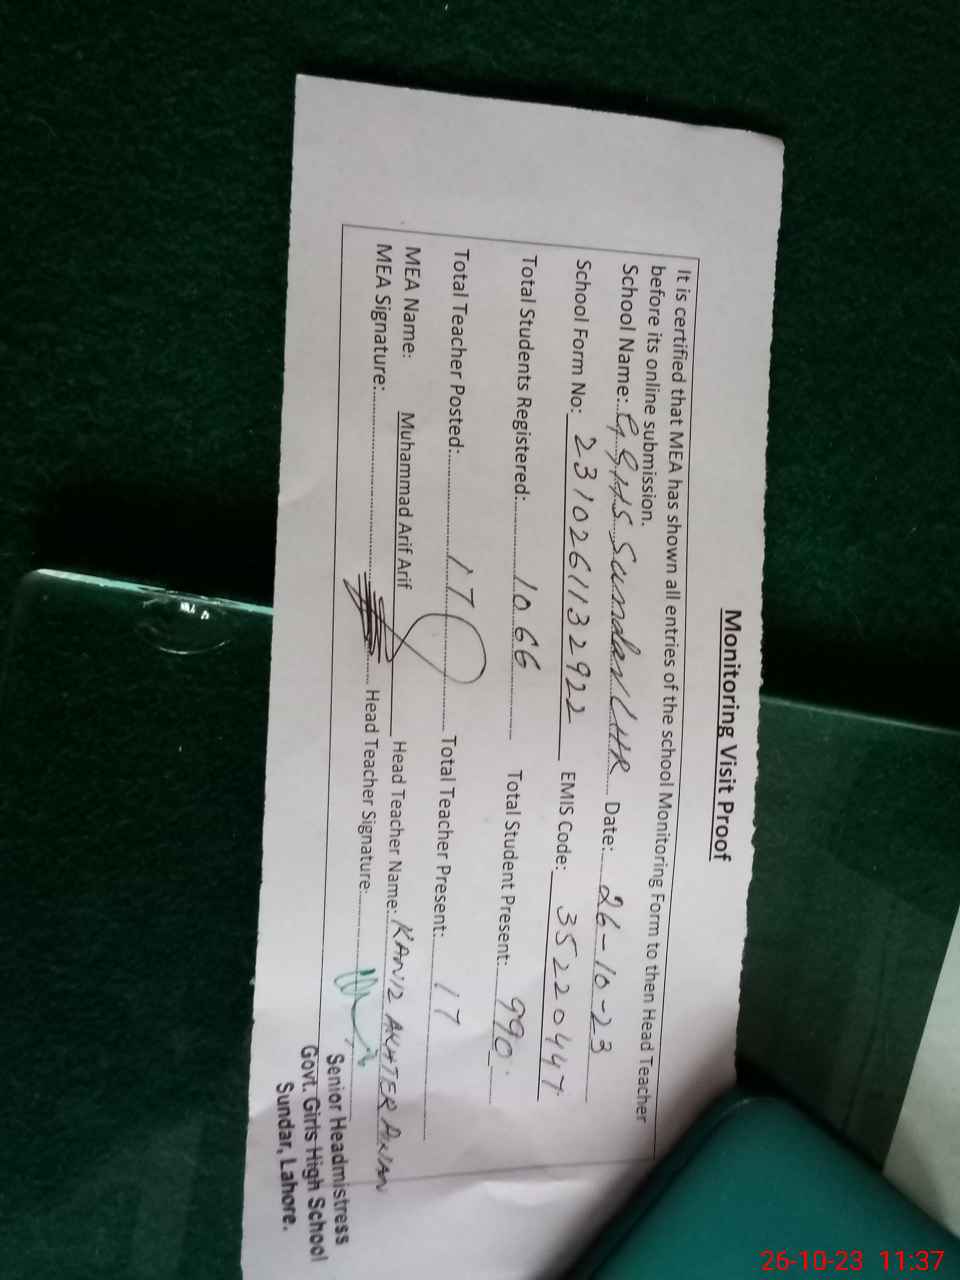 Monitoring Visit Proof
It is certified that MEA has shown all entries of the school Monitoring Form to then Head Teacher
before its online submission.
School Name: GGHS Sundar LHR Date: 26-10-23
School Form No: 2310261132922 EMIS Code: 35220447
Total Students Registered: 1066 Total Student Present: 990
Total Teacher Posted: 17 Total Teacher Present: 17
MEA Name: Muhammad Arif Arif Head Teacher Name: KANIZ AKHTER
MEA Signature: Head Teacher Signature:
Senior Headmistress
Govt. Girls High School
Sundar, Lahore.
26-10-23 11:37